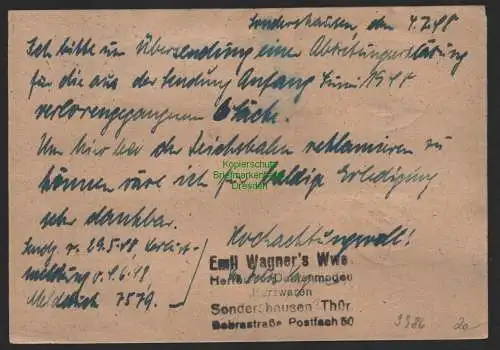 Sondershausen, den 4.7.48
Ich bitte um Übersendung einer Abtretungserklärung
für die aus der Sendung Anfang Juni 1948
verlorengegangenen 6 Säcke.
Um hier bei der Reichsbahn reklamieren zu
können wäre ich für baldige Erledigung
sehr dankbar.
Sendg. v. 29.5.48, Verlust-
meldung v. 9.6.48,
7579.
Hochachtungsvoll!
Emil Wagner's Wwe
Herren- u. Damenmoden
Kurzwaren
Sondershausen Thür.
Bebrastraße Postfach 50
Kopierschutz
Briefmarken
Dresden
3986 20